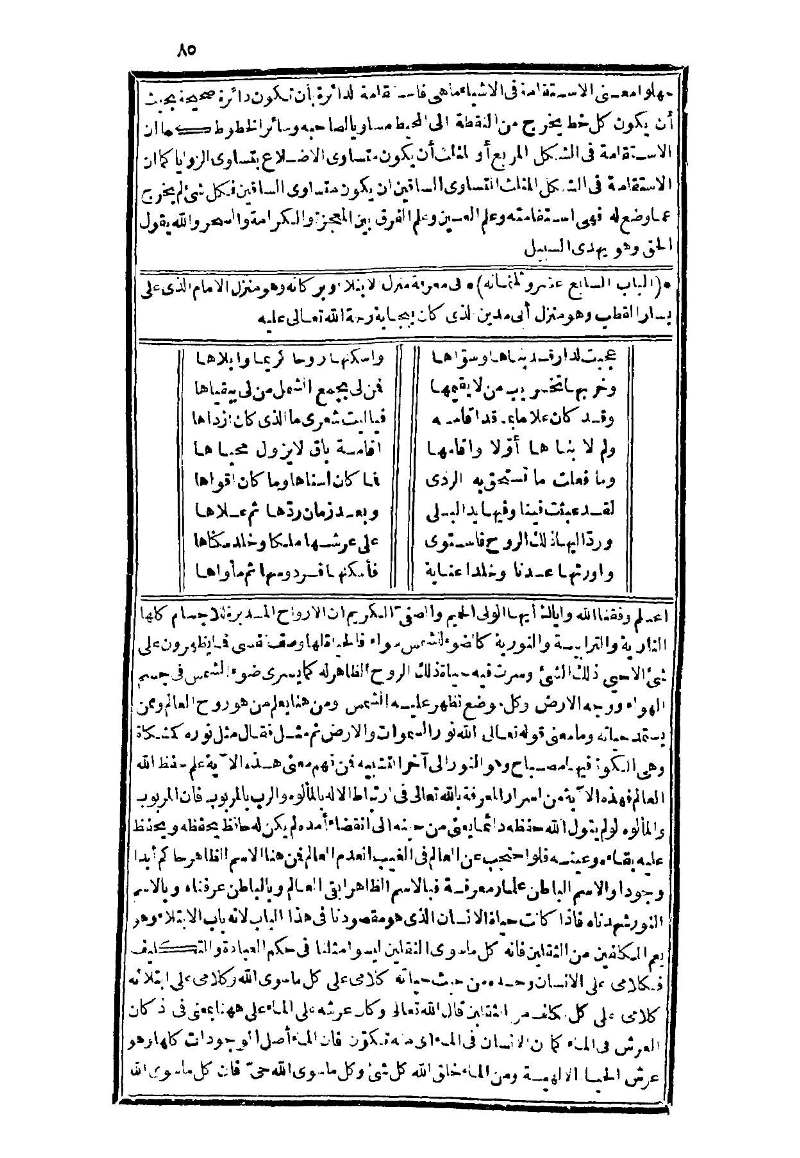 ٨٥
جهلوا معنى الاستقامة في الاشياء ما هي فاستقامة الدائرة بأن تكون دائرة صحيحة بحيث
أن يكون كل خط يخرج من النقطة الى المحيط مساويا لصاحبه وسائر الخطوط كما ان
الاستقامة في الشكل المربع أو المثلث أن يكون متساوى الاضلاع بتساوى الزوايا كما ان
الاستقامة في الشكل المثلث المتساوى الساقين ان يكون متساوى الساقين فكل شئ لم يخرج
عما وضع له فهى استقامته وعلم السين وعلم الفرق بين المعجزة والكرامة والسحر والله يقول
الحق وهو يهدى السبيل
•(الباب السابع عشر وثلثمائة)• فى معرفة منزل الابتلاء وبركاته وهو منزل الامام الذى على
يسار القطب وهو منزل أبى مدين الذى كان ببجاية رحمة الله تعالى عليه
عجبت لدار قد بناها وسوّاها واسكنها روحا كريما وابلاها
وخربها تخريب من لا يقيمها فمن لى بجمع الشمل من لى ببقياها
وقد كان علاما بما قد اقامه فياليت شعرى ما الذى كان ازداها
ولم لا بناها أوّلا واقامها اقامة باق لا يزول محياها
وما فعلت ما تستحق به الردى فما كان اسناها وما كان اقواها
لقد عبثت فينا وفيها يد البلى وبعد زمان ردّها ثم علاها
وردّ اليها ذلك الروح فاستوى على عرشها ملكا وخلد سكناها
واورثها عدنا وخلدا عناية فأسكنها فردوسها ثم مأواها
اعلم وفقنا الله واياك أيها الولى الحميم والصفىّ الكريم ان الارواح المدبرة للاجسام كلها
النارية والترابية والنورية كالضوء للشمس سواء فالحياة لها وصف نفسى فما يظهرون على
شئ الاحيى ذلك الشئ وسرت فيه حياة ذلك الروح الظاهر له كما يسرى ضوء الشمس فى جسم
الهواء ووجه الارض وكل موضع تظهر عليه الشمس ومن هنا يعلم من هو روح العالم وممن
يستمد حياته وما معنى قوله تعالى الله نور السموات والارض ثم مثل فقال مثل نوره كمشكاة
وهى الكوة فيها مصباح وهو النور الى آخر التشبيه فمن فهم معنى هذه الآية علم حفظ الله
العالم فهذه الآية من اسرار المعرفة بالله تعالى فى ارتباط الاله بالمألوه والرب بالمربوب فان المربوب
والمألوه لو لم يتول الله حفظه دائما لفنى من حينه الى انقضاء أمده لم يكن له حافظ يحفظه ويحفظ
عليه بقاءه وعينه فلو احتجب عن العالم فى الغيب انعدم العالم فمن هنا الاسم الظاهر حاكم أبدا
وجودا والاسم الباطن علما ومعرفة فبالاسم الظاهر ابقى العالم وبالباطن عرفناه وبالاسم
النور شهدناه فاذا كانت حياة الانسان الذى هو مقصودنا فى هذا الباب لانه باب الابتلاء وهو
يعم المكلفين من الثقلين فانه كل ما سوى الثقلين ليسوا مثلنا فى حكم العبادة والتكليف
فكلامى على الانسان وحده من حيث حياته كلامى على كل ما سوى الله وكلامى على ابتلائه
كلامى على كل مكلف من الثقلين قال الله تعالى وكان عرشه على الماء على ههنا بمعنى فى ذ كان
العرش فى الماء كما ان الانسان فى الماء اى منه تكوّن فان الماء أصل الموجودات كلها وهو
عرش الحياة الالهية ومن الماء خلق الله كل شئ وكل ما سوى الله حىّ فان كل ما سوى الله